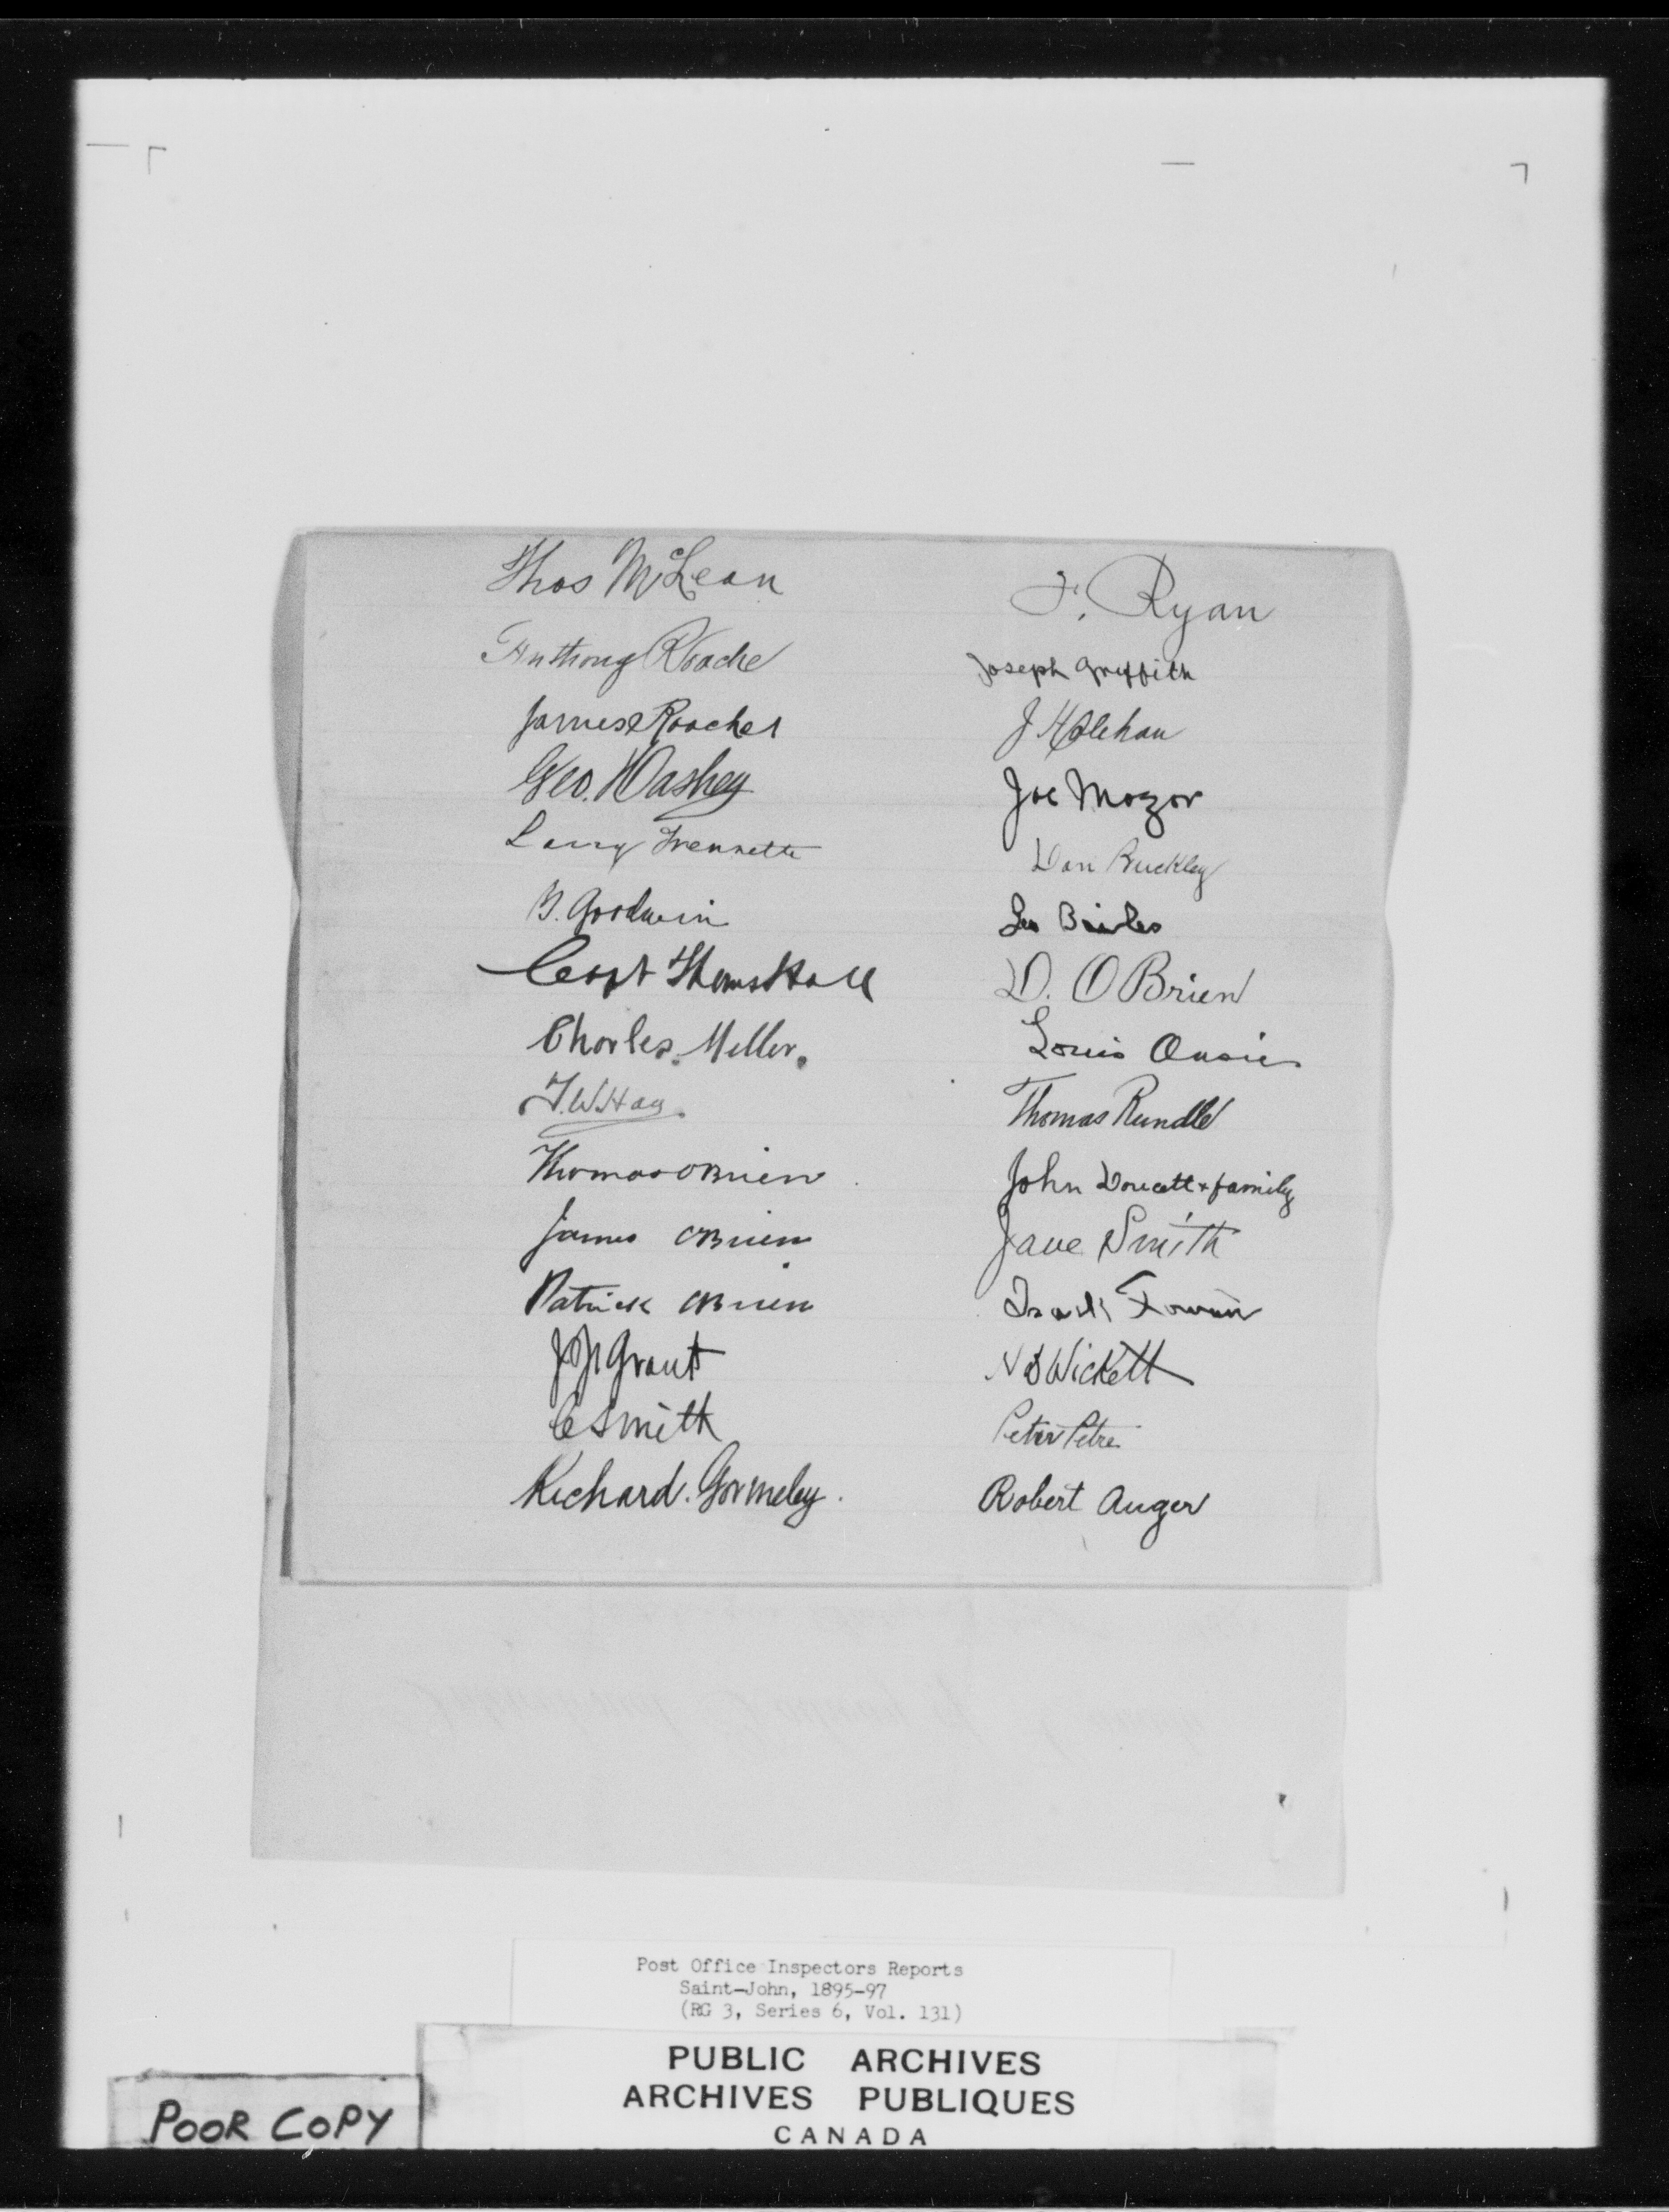 Thos McLean
Anthony Roache
James Roache
Geo. Washey
Larry Frennette
B. Goodwin
Capt Thomas Hall
Charles. Miller.
T. W. Hay.
Thomas OBrien
James OBrien
Patrick OBrien
Grant
C Smith
Richard. Gormeley.
F. Ryan
Joseph Griffith
J Holehan
Joe Mozor
Dan Buckley
Leo
D. OBrien
Louis
Thomas Rundle
John Doucett + family
Jane Smith
Frank
Wickett
Peter Petre
Robert Auger
Post Office Inspectors Reports
Saint-John, 1895-97
(RG 3, Series 6, Vol. 131)
PUBLIC ARCHIVES
ARCHIVES PUBLIQUES
CANADA
POOR COPY